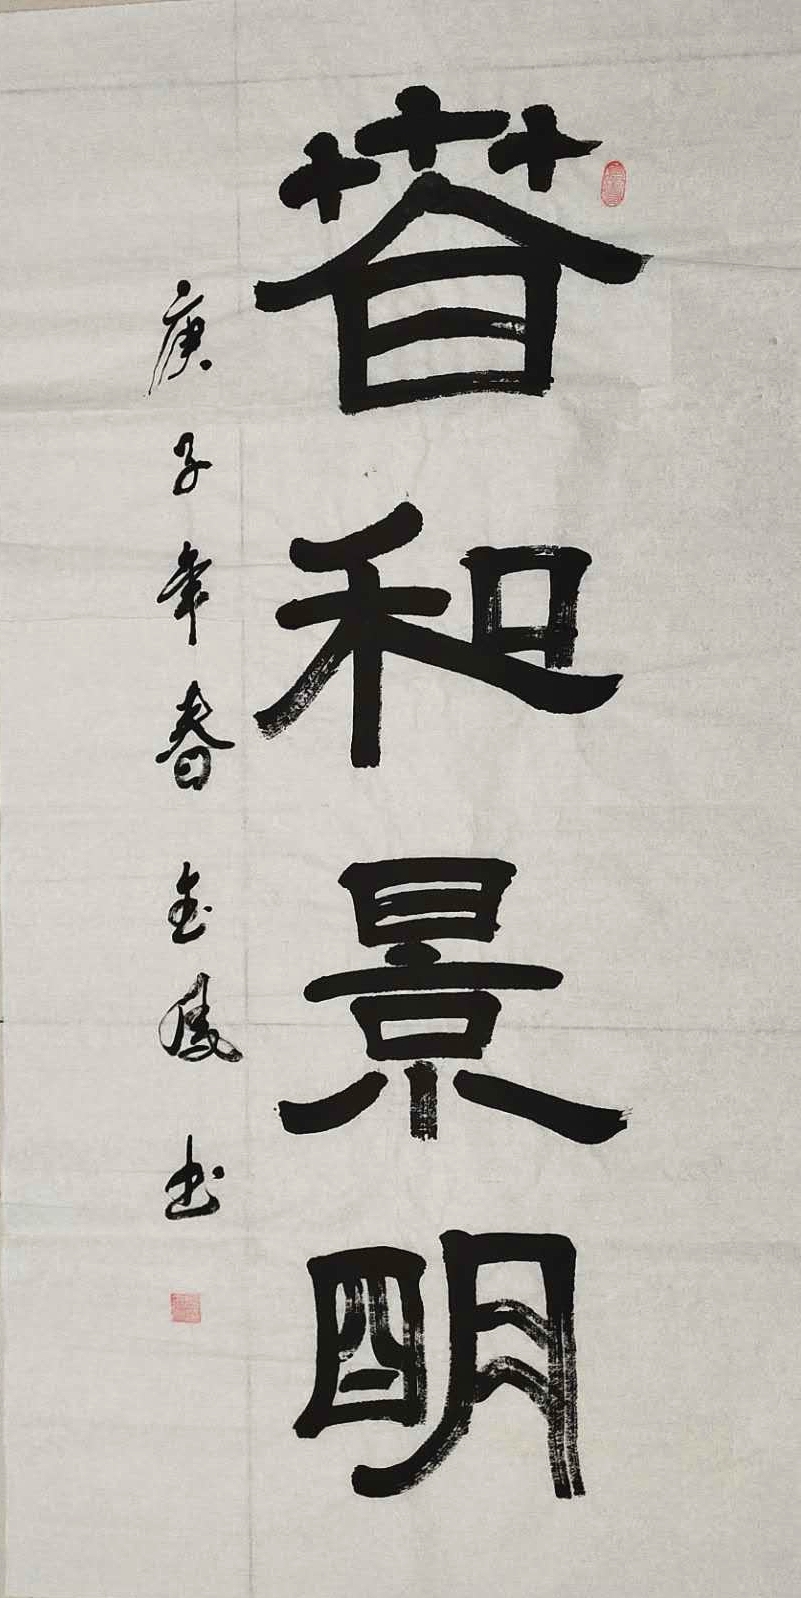 春和景明
庚子年春金陵书